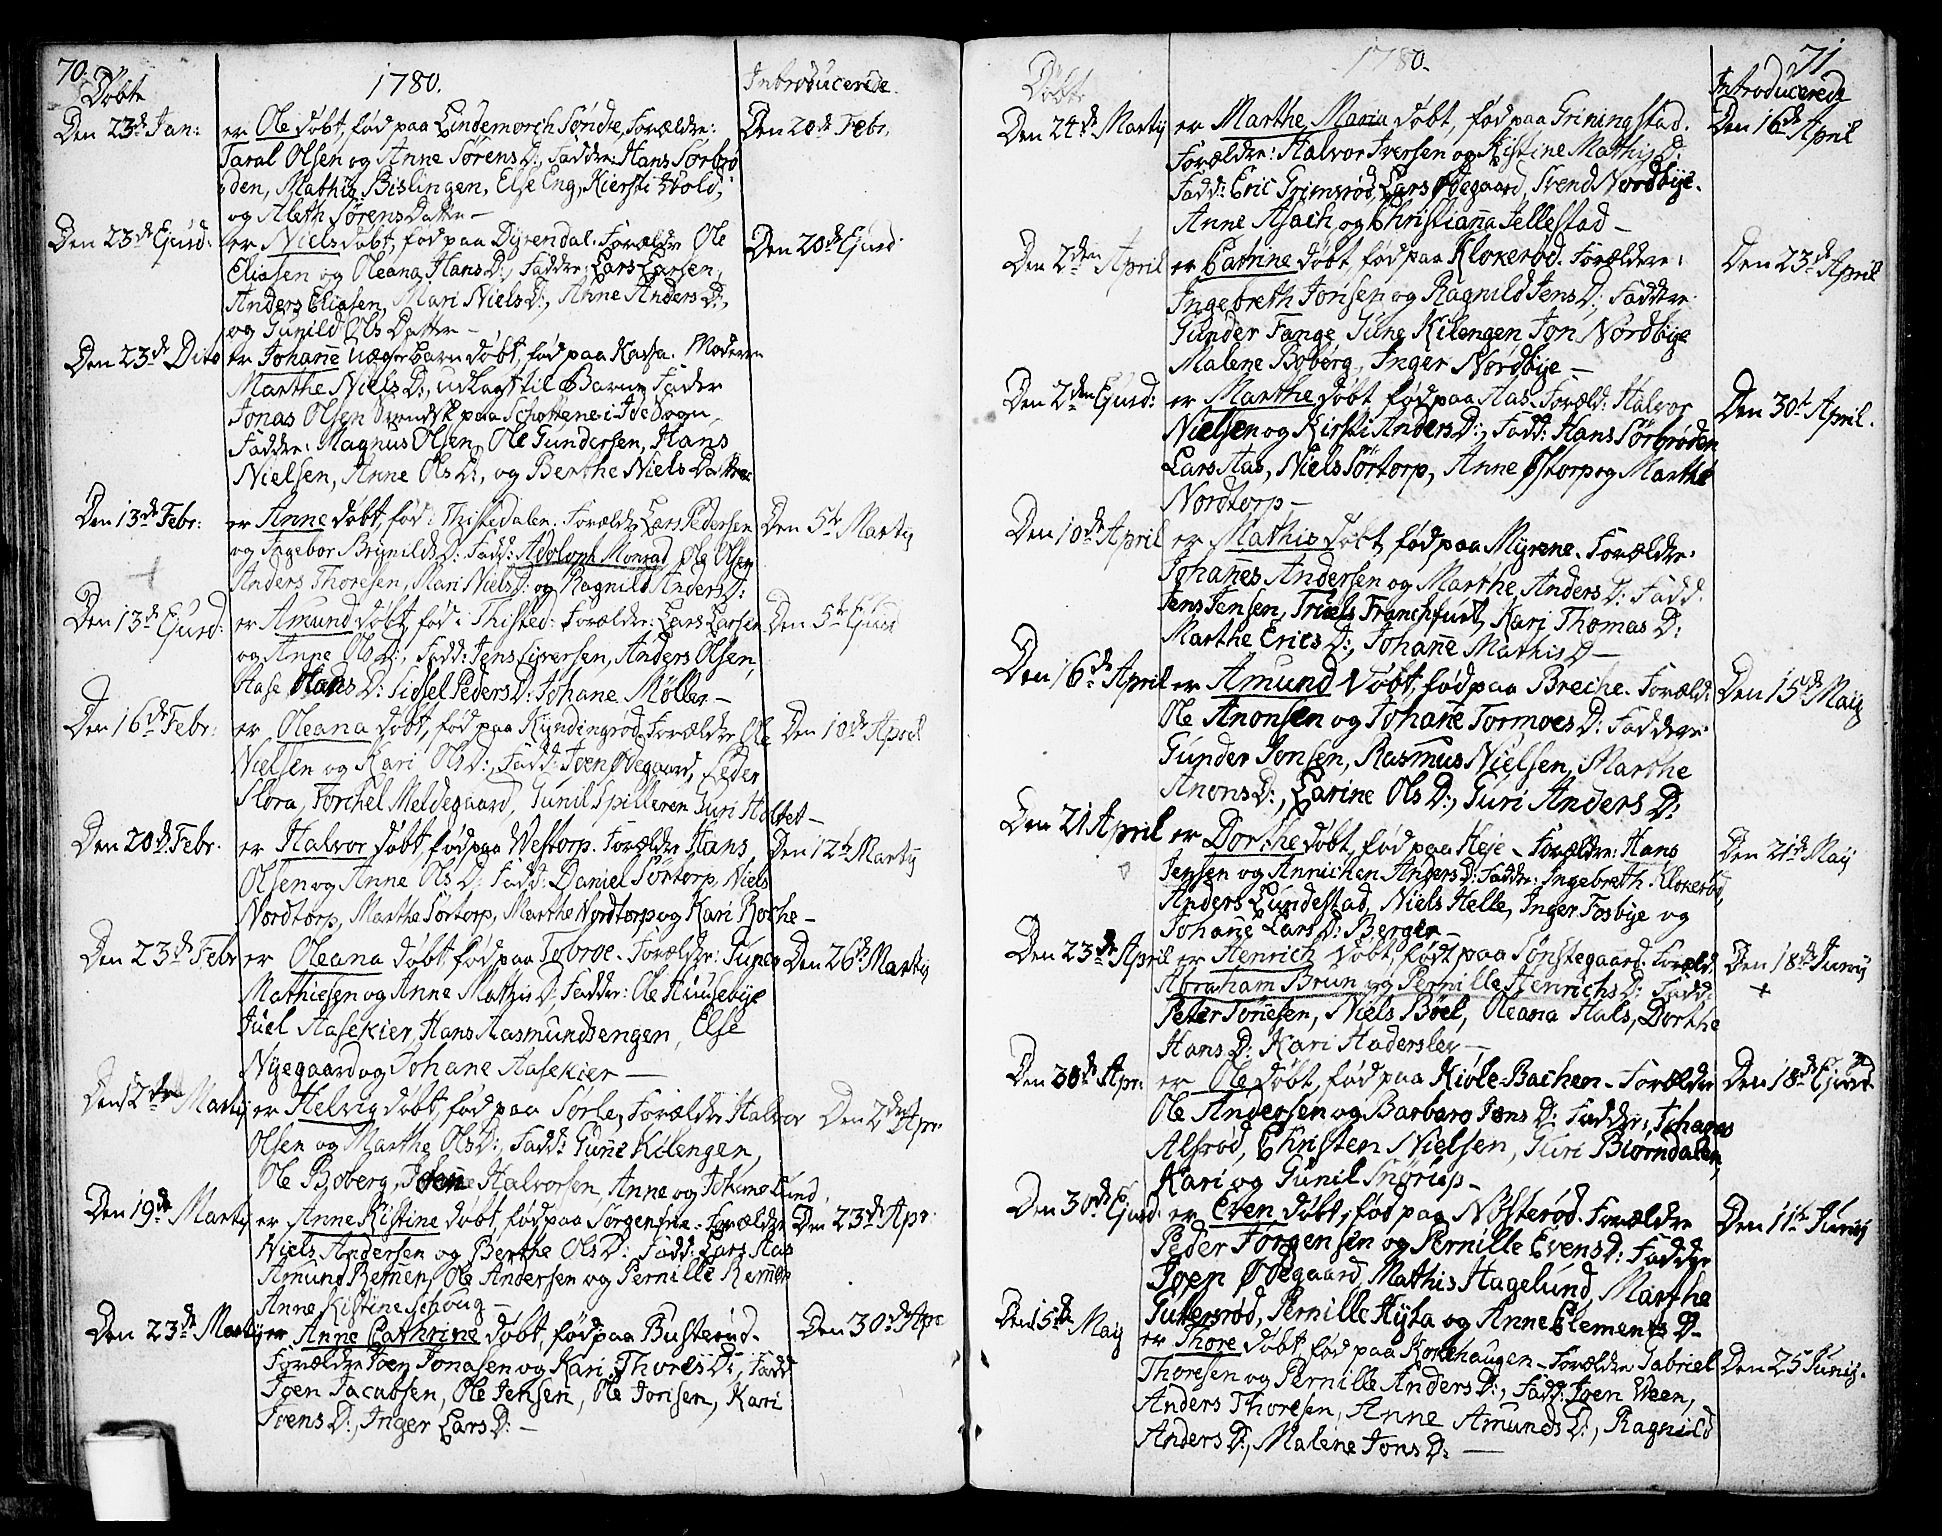 70.
Döbte 1780. Introducerede.
Den 23de Jan: er Ole döbt, fød paa Lindemarch Söndre, Forældre: Den 20de Febr.
Taral Olsen og Anne Sørens D:, Faddre: Hans Sörbrö-
den, Mathis Bislingen, Else Eng, Kiersti Wold,
og Aleth Sørens Datter —
Den 23de Ejusd: er Niels döbt, fød paa Dyrendal. Forældre Ole Den 20de Ejusd
Eliasen og Oleana Hans D:, Faddre: Lars Larsen,
Anders Eliasen, Mari Niels D:, Anne Anders D:,
og Gunild Ols Datter —
Den 23de Dito er Johane uægte barn döbt, fød paa Kassa. Moderen
Marthe Niels D:, udlagt til Barne Fader
Jonas Olsen Svendsk paa Schottene i Ide Sogn,
Faddre: Magnus Olsen, Ole Gundersen, Hans
Nielsen, Anne Ols D:, og Berthe Niels Datter
Den 13de Febr: er Anne döbt, fød i Thistedalen. Forældre Lars Pedersen Den 5te Martij
og Ingebor Brynilds D: Fadd: Adoloph Monrad, Ole Olsen
Anders Thoresen, Mari Niels D: og Ragnild Anders D:
Den 13de Ejusd: er Amund döbt, fød i Thisted: Forældre: Lars Larsen Den 5te Ejusd
og Anne Ols D:, Fadd: Jens Siversen, Anders Olsen,
Aase Hans D: Sidsel Peders D: Johane Møller —
Den 16de Febr: er Oleana döbt, fød paa Kyndingrød. Forældre Ole Den 10de April
Nielsen og Kari Ols D:, Fadd: Joen Ødegaard, Peder
Flora, Torchel Meldegaard, Gunil Spilleren Guri Holtet —
Den 20de Febr. er Halvor döbt, fød paa Westorp. Forældre Hans Den 12te Martij
Olsen og Anne Ols D: Fadd: Daniel Sörtorp, Niels
Nordtorp, Marthe Sörtorp, Marthe Nordtorp og Kari Roche —
Den 23de Febr er Oleana döbt, fød paa Tobroe. Forældre: Gunder Den 26de Martij
Mathiesen og Anne Mathis D, Faddre: Ole Huusebye
Juel Aasekier, Hans Aasmundsengen, Else
Nyegaard og Johane Aasekier —
Den 12te Martij er Helvig döbt, fød paa Sörle, Forældre Halvor Den 2den Apr
Olsen og Marthe Ols D:, Fadd: Gune Kilengen,
Ole Boberg, Halvorsen, Anne og Johane Lund.
Den 19de Martij er Anne Kistine döbt, fød paa Sorgenfrie. Forældre Den 23de Apr:
Niels Andersen og Berthe Ols D: Fadd: Lars Aas
Amund Remen, Ole Andersen og Pernille Remen
Anne Kistine Schoug —
Den 23de Martij er Anne Cathrine döbt, fød paa Busterud. Den 30de Apr
Forældre Joen Jonasen og Kari Thores D:, Fadd
Joen Jacobsen, Ole Jensen, Ole Jonsen, Kari
Joens D:, Inger Lars D: —
71
Döbte 1780. Introducerede
Den 24de Martij er Marthe Maria döbt, fød paa Griningstad. Den 16de April
Forældre: Halvor Iversen og Kistine Mathis D:
Fadd: Eric Grimsrød, Lars Ødegaard, Svend Nordbye.
Anne Asach og Christiana Tellestad —
Den 2den April er Catrine döbt fød paa Klokerød. Forældre: Den 23de April
Ingebreth Jonsen og Ragnild Jens D:, Faddre:
Gunder Fange, Gune Kilengen, Jon Nordbye
Malene Boberg, Inger Nordbye —
Den 2den Ejusd: er Marthe döbt fød paa Aas. Foræld: Halvor Den 30te April.
Nielsen og Kirsti Anders D:, Fadd: Hans Sörbrøden
Lars Aas, Niels Sörtorp, Anne Østorp og Marthe
Nordtorp —
Den 10de April er Mathis döbt, fød paa Myrene. Forældre:
Johanes Andersen og Marthe Anders D: Fadd:
Jens Jensen, Truels Franchfurt, Kari Thomas D:
Marthe Erics D:, Johane Mathis D —
Den 16de April er Amund döbt, fød paa Breche. Foræld: Den 15de Maij
Ole Anonsen og Johane Tormoes D: Faddere:
Gunder Jonsen, Rasmus Nielsen, Marthe
Anons D:, Carine Ols D:, Guri Anders D:
Den 21 April er Dorthe döbt, fød paa Heje – Forældre: Hans Den 21de Maij
Jensen og Annichen Anders D: Faddre: Ingebreth Klokerød,
Anders Lundestad, Niels Helle, Inger Fosbye og
Johane Lars D: Berger —
Den 23de April er Henrich döbt, født paa Sønstegaard. Foræld. Den 18de Junij
Abraham Brun og Pernille Henrichs D: Fadd: +
Peter Tonesen, Niels Böel, Oleana Hals, Dorthe
Hans D: Kari Haderslev —
Den 30de Apr: er Ole döbt, fød paa Kiöle-Bachen – Forældre Den 18de Ejusd
Ole Andersen og Barbara Jons D: Faddre: Johanes
Alsrød, Christen Nielsen, Guri Biørndalen,
Kari og Gunil Snörup —
Den 30de Ejusd: er Even döbt, fød paa Nösterød. Forældre Den 11te Junij
Peder Jørgensen og Pernille Evens D: Faddre
Joen Ødegaard, Mathis Hagelund, Marthe
Guttersrød, Pernille Hyta og Anne Clements D –
Den 15de Maij er Thore döbt, fød paa Korsehaugen – Forældre Gabriel Den 25 Junij.
Thoresen og Pernille Anders D:, Fadd: Joen Ween,
Anders Thoresen, Anne Amunds D:, Ragnild
Anders D:, Malene Jons D: —